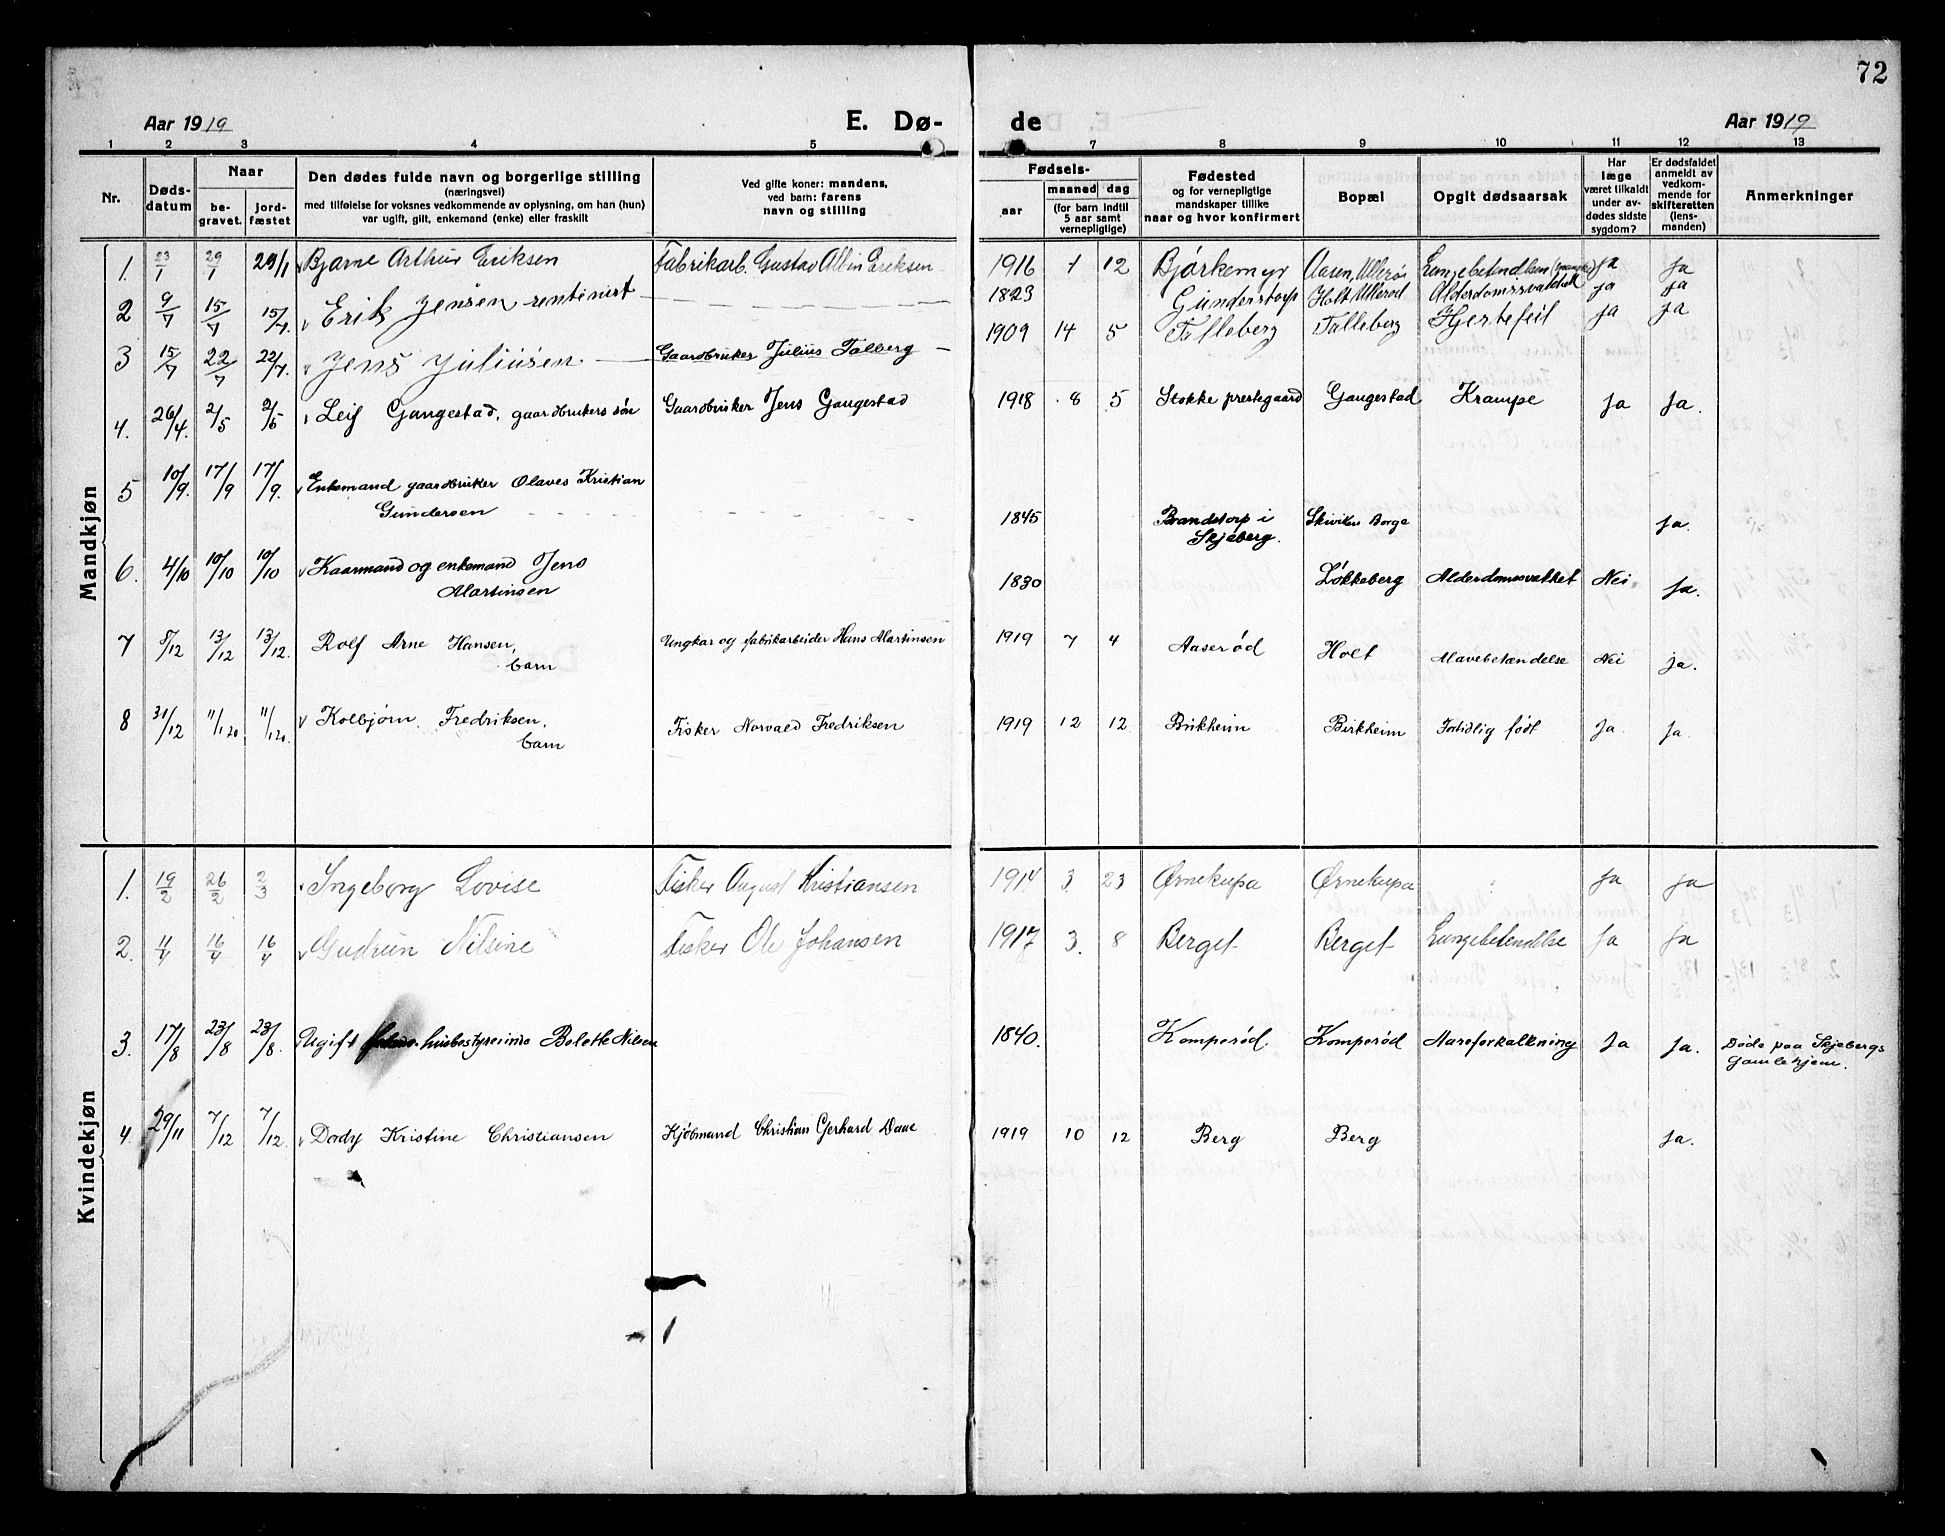 72
Aar 1919 E. Dø- de Aar 1919
1 2 3 4 5 7 8 9 10 11 12 13
Nr. Døds-datum Naar be-gravet. jord-fæstet Den dødes fulde navn og borgerlige stilling (næringsvei) med tilføielse for voksnes vedkommende av oplysning, om han (hun) var ugift, gift, enkemand (enke) eller fraskilt Ved gifte koner: mandens, ved barn: farens navn og stilling Fødsels- aar maaned dag (for barn indtil 5 aar samt vernepligtige) Fødested og for vernepligtige mandskaper tillike naar og hvor konfirmert Bopæl Opgit dødsaarsak Har læge været tilkaldt under av-dødes sidste sygdom? Er dødsfaldet anmeldt av vedkom-mende for skifteretten (lens-manden) Anmerkninger
Mandkjøn
1. 23/1 29/1 29/1 Bjarne Arthur Eriksen Fabrikarb. Gustav Albin Eriksen 1916 1 12 Bjørkemyr Aasen, Ullerø ja ja
2 9/7 15/7 15/7. Erik Jensen rentenist 1823 Gunderstorp Holt Ullerød ja ja
3 15/7 22/7 22/7. Jens Juliusen Gaardbruker Julius Talberg 1909 14 5 Talleberg Talleberg Hjertefeil ja ja
4. 26/4. 2/5 2/5 Leif Gangestad, gaardbrukers søn Gaardbruker Jens Gangestad 1918 8 5 Stokke prestegaard Gangestad Krampe Ja Ja.
5 10/9. 17/9 17/9. Enkemand gaardbruker Olaves Kristian
Gundersen 1845 Brandstorp i Skjeberg. Skiviken Borge Ja.
6. 4/10 10/10 10/10 Kaarmand og enkemand Jens
Martinsen 1830 Løkkeberg Alderdomssvakhet Nei Ja.
7 8/12 13/12 13/12. Rolf Arne Hansen, Ungkar og fabrikarbeider Hans Martinsen 1919 7 4 Aaserød Holt Mavebetændelse Nei ja.
barn
8 31/12 11/1 20 11/1 20. Kolbjørn Fredriksen, Fisker Norvald Fredriksen 1919 12 12 Birkheim Birkheim Fortidlig født Ja Ja.
barn
Kvindekjøn
1. 19/2 26/2 2/3 Ingeborg Lovise Fisker August Kristiansen 1914 3 23 Ørnekupa Ørnekupa ja ja
2. 11/4 16/4 16/4 Gudrun Nilsine Fisker Ole Johansen 1917 3. 8 Berget Berget Lungebetendelse Ja Ja
3. 17/8 23/8 23/8. Ugift husbestyrerinde Bolette Nilsen 1840. Komperød Komperød Aareforkalkning Ja Ja. Døde paa Skjebergs
Gamlehjem.
4. 29/11 7/12 7/12. Dordy Kristine Christiansen Kjøbmand Christian Gerhard Daae 1919 10 12 Berg Berg Ja.